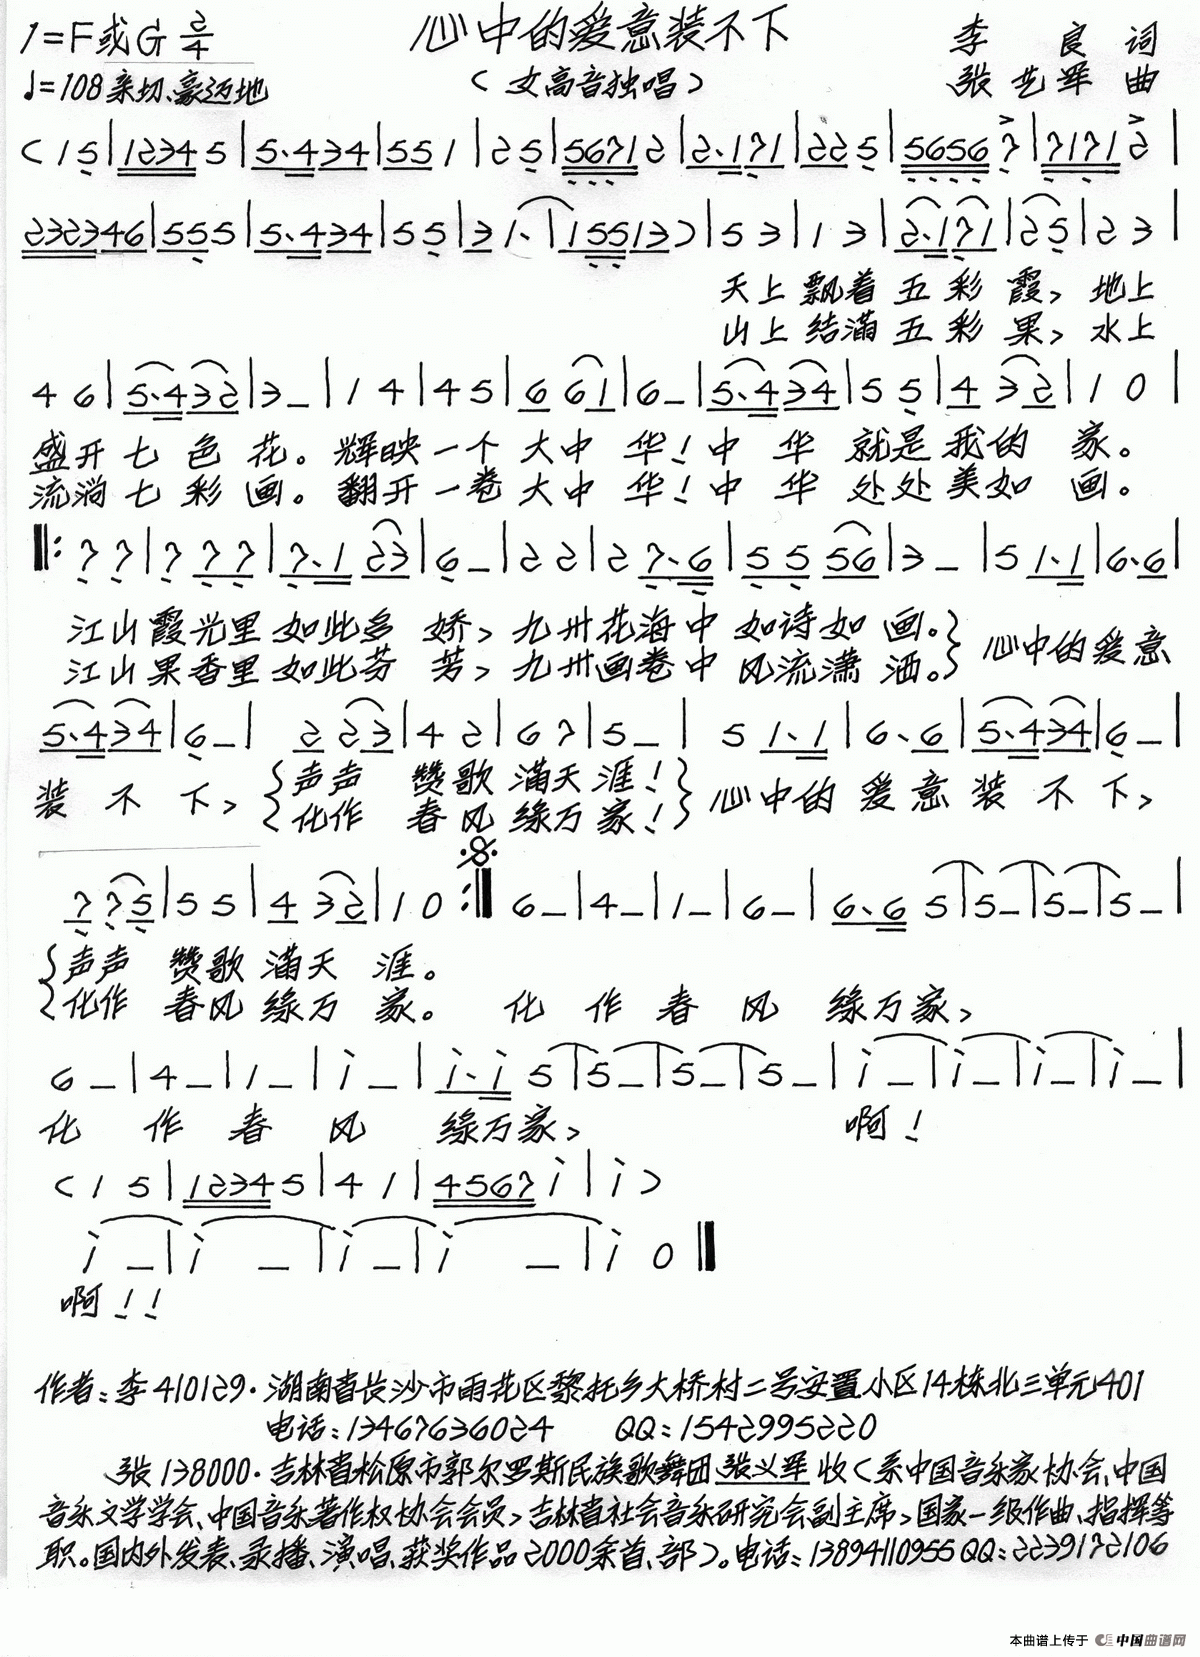 心中的爱意装不下
1=F或G 2/4
李 良 词
(女高音独唱)
♩=108 亲切、豪迈地
张艺军 曲
( 1 5 | 1234 5 | 5·434 | 55 1 | 2 5 | 5671 2 | 2·171 | 22 5 | 5656 7 | 7171 2 |
232346 | 555 | 5·434 | 5 5 | 3 1· | 15513 ) | 5 3 | 1 3 | 2·171 | 2 5 | 2 3 |
天上飘着五彩霞, 地上
山上结满五彩果, 水上
4 6 | 5·432 | 3 – | 1 4 | 4 5 | 6 61 | 6 – | 5·434 | 5 5 | 4 32 | 1 0 |
盛开七色花。辉映一个大中华!中华就是我的家。
流淌七彩画。翻开一卷大中华!中华处处美如画。
‖: 7 7 | 7 7 7 | 7·1 23 | 6 – | 2 2 | 2 7·6 | 5 5 56 | 3 – | 5 1·1 | 6·6 |
江山霞光里如此多娇, 九卅花海中如诗如画。} 心中的爱意
江山果香里如此芬芳, 九卅画卷中风流潇洒。}
5·434 | 6 – | 2 23 | 4 2 | 6 7 | 5 – | 5 1·1 | 6·6 | 5·434 | 6 – |
装不下, {声声赞歌满天涯!} 心中的爱意装不下,
{化作春风绿万家!}
7 75 | 5 5 | 4 32 | 1 0 :‖ 6 – | 4 – | 1 – | 6 – | 6·6 5 | 5 – | 5 – | 5 – |
{声声赞歌满天涯。
{化作春风绿万家。 化作春风绿万家,
6 – | 4 – | 1 – | i – | i·i 5 | 5 – | 5 – | 5 – | i – | i – | i – | i – |
化作春风绿万家, 啊!
( 1 5 | 1234 5 | 4 1 | 4567 i | i )
i – | i – | i – | i – | i 0 ‖
啊!!
作者:李 410129·湖南省长沙市雨花区黎托乡大桥村二号安置小区14栋北三单元401
电话:13467636024 QQ:1542995220
张 138000·吉林省松原市郭尔罗斯民族歌舞团 张义军 收(系中国音乐家协会、中国
音乐文学学会、中国音乐著作权协会会员,吉林省社会音乐研究会副主席,国家一级作曲、指挥等
职。国内外发表、录播、演唱、获奖作品2000余首、部)。电话:13894110955 QQ:2239172106
本曲谱上传于 中国曲谱网